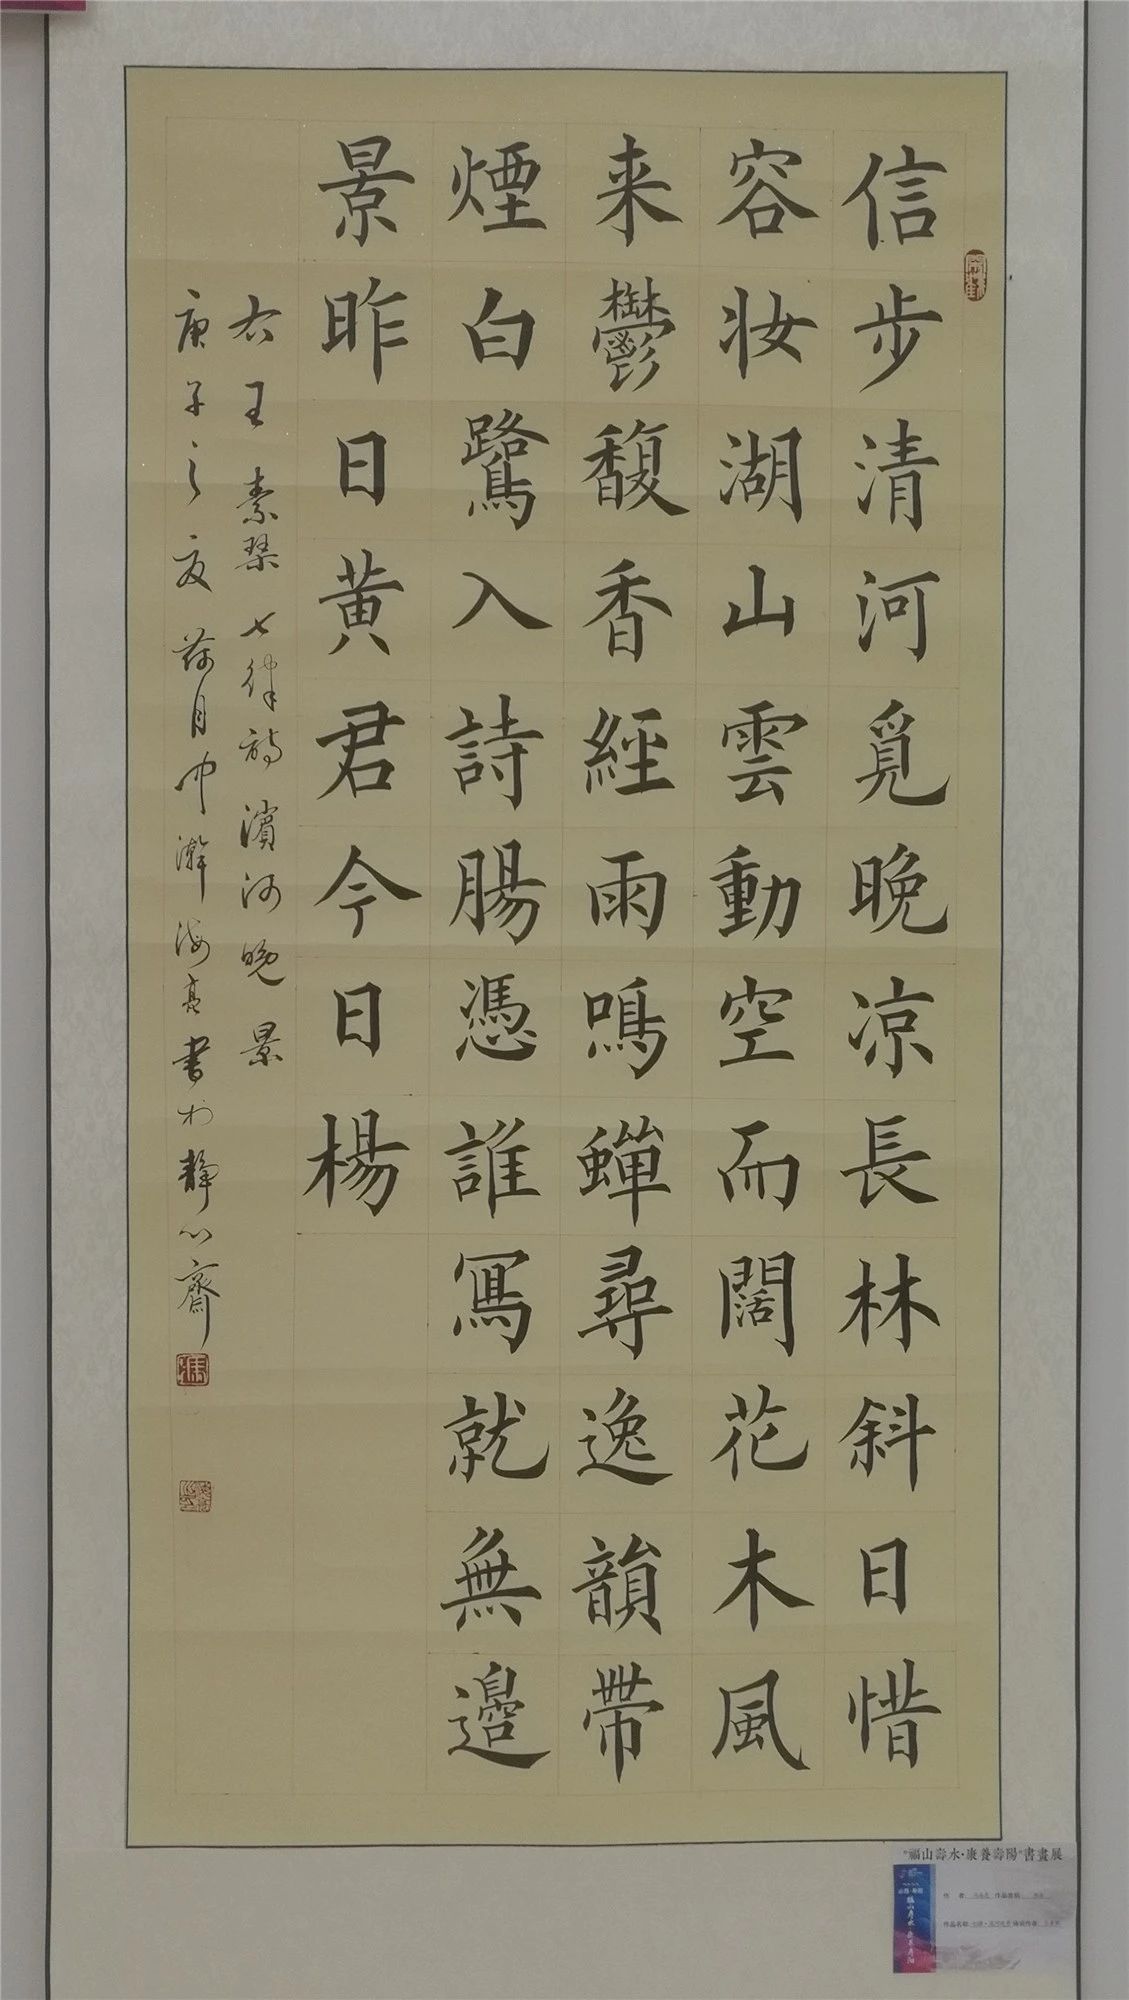 信步清河覓晚凉長林斜日惜
容妝湖山雲動空而闊花木風
来鬱馥香經雨鳴蟬尋逸韻帶
煙白鷺入詩腸憑誰寫就無邊
景昨日黄君今日楊
右王素琴七律詩濱河晚景
庚子之夏荷月中澣海亮書於靜心齋
"福山壽水·康養壽陽"書畫展
作者 作品
作品名称
福山寿水 康养寿阳